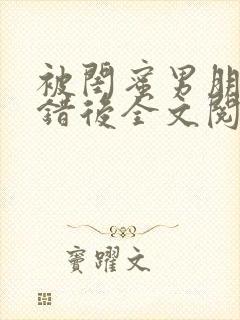 被閨蜜男朋
錯後全文閱
竇躍文